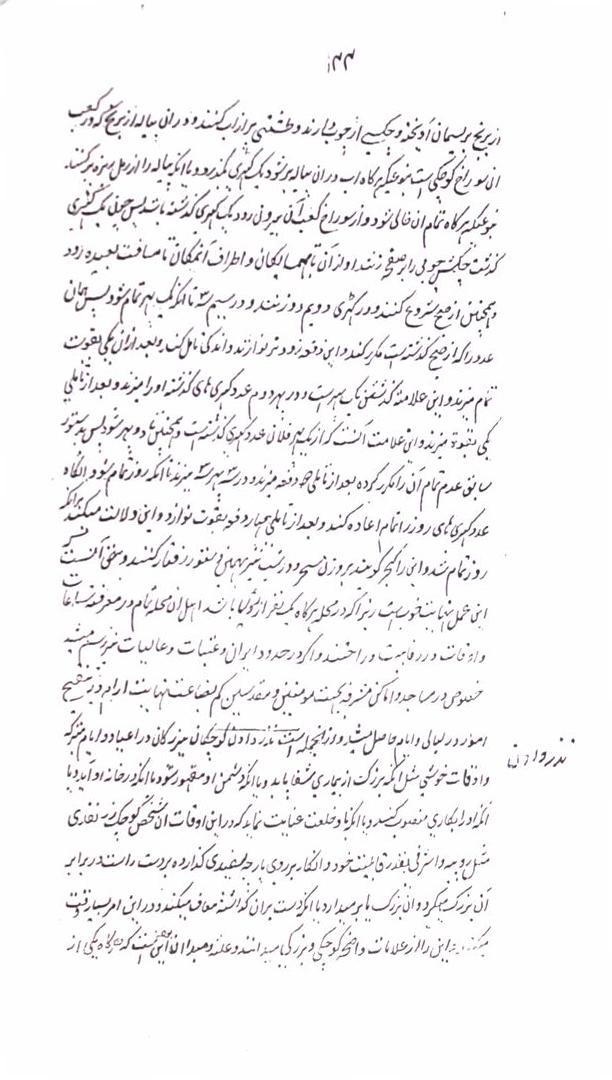 ۱۴۴
از برنج بریسمان آویخته و چکشی از چوب دارند و طشتی پر از آب کنند و در آن پیاله از برنج که در کعب
آن سوراخ کوچکی است بنوعیکه هرگاه آب در آن پیاله پر شود یک کهری بگذرد و یا آنکه پیاله را از رمل میزه پر کنند
بنوعیکه هرگاه تمام آن خالی شود و از سوراخ کعب آن بیرون رود یک کهری گذشته باشد پس چون یک کهری
گذشت چکش چوبی را بر صفحه زنند آواز آن تا همسایگان و اطراف آنمکان تا مسافت بعیده رود
و همچنین از صبح شروع کنند و در کهری دویم دو زنند و در سیم ۳ تا آنکه یک پهر تمام شود پس همان
عدد را که از صبح گذشته است مکرر کند و این دفعه زودتر نوازند و اندکی تامل کند و بعد از آن یکی بقوت
تمام میزند و این علامت گذشتن یک پهر است و در پهر دوم عدد کهری های گذشته او را میزند و بعد از تاملی
یکی بقوة میزند و این علامت آنست که از یک پهر فلان عدد کهری گذشته است و همچنین تا دو پهر شود پس بدستور
سابق عدد تمام آن را مکرر کرده بعد از تاملی دو دفعه میزند و در سه پهر سه میزند تا آنکه روز تمام شود آنگاه
عدد کهری های روز را تمام اعاده کند و بعد از تاملی چهار دفعه بقوت نوازد و این دلالت میکند بر آنکه
روز تمام شد و این را گجر گویند بر وزن سحر و در شب نیز بهمین دستور رفتار کنند و سخن آنست
این عمل نهایت خوب است زیرا که در محله هرگاه یک نفر از باشد اهل آن محله تمام در معرفت ساعات
و اوقات در رفاهیت و راحتند و اگر در حدود ایران و عتبات عالیات نیز رسم میشد
خصوص در مساجد و اماکن مشرفه بجهت مومنین و مقدسین کم بضاعت نهایت آرام در تنقیح
امور در لیالی و ایام حاصل میشد و از آنجمله است نذر دادن کوچکان ببزرگان در اعیاد و ایام متبرکه
و اوقات خوشی مثل آنکه بزرگ از بیماری شفا یابد و یا آنکه دشمن او مقهور شود یا آنکه در خانه او آید و یا
آنکه او را بکاری منصوب کنند و یا آنکه باو خلعت عنایت نماید که در این اوقات آن شخص کوچک زر نقدی
مثل روپیه و اشرفی بقدر قابلیت خود و آنکار بر روی پارچه سفیدی گذارده بر دست راست در برابر
آن بزرگ میگیرد و آن بزرگ یا بر میدارد یا آنکه دست بر آن گذاشته معاف میکند و در این امر بسیار دقت
میکنند و این را از علامات واضحه کوچکی و بزرگی میدانند و عمده میدان این است که هرگاه یکی از
نذر دادن